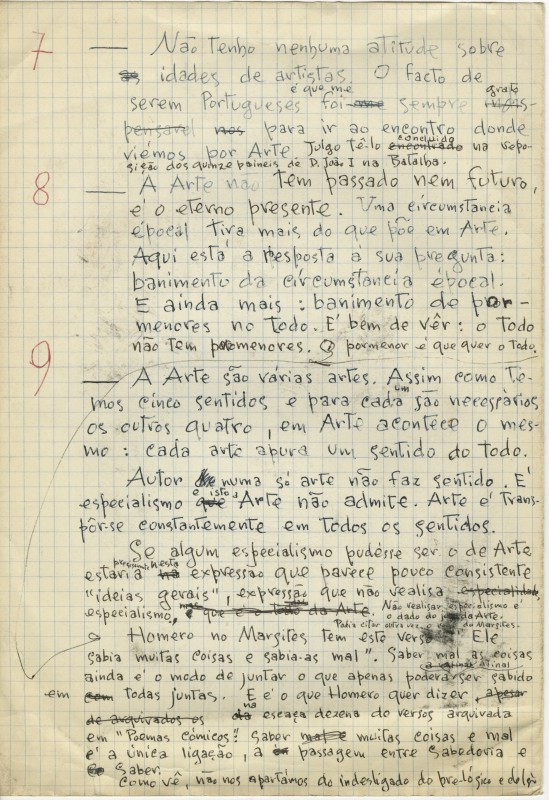 7 — Não tenho nenhuma atitude sobre
as idades de artistas. O facto de
é que me
serem Portugueses foi sempre grato
pensavel nos para ir ao encontro donde
viémos por Arte Julgo tê-lo encontrado concluido na repo-
sição dos quinze paineis de D. João I na Batalha.
8 — A Arte não tem passado nem futuro,
é o eterno presente. Uma circumstancia
épocal tira mais do que põe em Arte.
Aqui está a resposta à sua pregunta:
banimento da circumstancia épocal.
E ainda mais: banimento de por-
menores no todo. É bem de vêr: o todo
não tem pormenores. O pormenor é que quer o todo.
9 — A Arte são várias artes. Assim como te-
mos cinco sentidos e para cada um são necessários
os outros quatro, em Arte acontece o mes-
mo: cada arte apura um sentido do todo.
Autor numa só arte não faz sentido. É
especialismo que e isto a Arte não admite. Arte é trans-
pôr-se constantemente em todos os sentidos.
Se algum especialismo pudésse ser o de Arte
estaria na nesta expressão que parece pouco consistente
"ideias gerais", expressão que não realisa especialidade,
especialismo, que é o todo da Arte. Não realisar especialismo é
o dado da Arte.
Podia citar outra vez o verso do Margites.
Homero no Margites tem este verso "Ele
sabia muitas coisas e sabia-as mal". Saber mal as coisas
ainda é o modo de juntar o que apenas poderá ser sabido
em com todas juntas. E é o que Homero quer dizer, apesar
de arquivados os na escaça dezena de versos arquivada
em "Poemas Cómicos". Saber mal e muitas coisas e mal
é a única ligação, a passagem entre Sabedoria e
e Saber.
Como vê, não nos apartámos do indestigado do pre-lógico e do